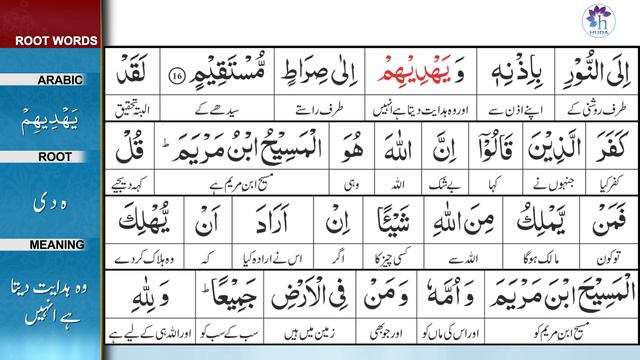 ROOT WORDS
ARABIC
يَهْدِيهِمْ
ROOT
ہ د ی
MEANING
وہ ہدایت دیتا
ہے انہیں
HUDA
اِلَى النُّوْرِ بِاِذْنِهٖ وَ يَهْدِيْهِمْ اِلٰى صِرَاطٍ مُّسْتَقِيْمٍ 16 لَقَدْ
طرف روشنی کے اپنے اذن سے اور وہ ہدایت دیتا ہے انہیں طرف راستے سیدھے کے البتہ تحقیق
كَفَرَ الَّذِيْنَ قَالُوْۤا اِنَّ اللّٰهَ هُوَ الْمَسِيْحُ ابْنُ مَرْيَمَ ؕ قُلْ
کفر کیا جنہوں نے کہا بے شک اللہ وہی مسیح ابن مریم ہے کہہ دیجیے
فَمَنْ يَّمْلِكُ مِنَ اللّٰهِ شَيْـًٔا اِنْ اَرَادَ اَنْ يُّهْلِكَ
تو کون مالک ہوگا اللہ سے کسی چیز کا اگر اس نے ارادہ کیا کہ وہ ہلاک کر دے
الْمَسِيْحَ ابْنَ مَرْيَمَ وَ اُمَّهٗ وَ مَنْ فِى الْاَرْضِ جَمِيْعًا ؕ وَ لِلّٰهِ
مسیح ابن مریم کو اور اس کی ماں کو اور جو بھی زمین میں ہیں سب کے سب کو اور اللہ ہی کے لیے ہے